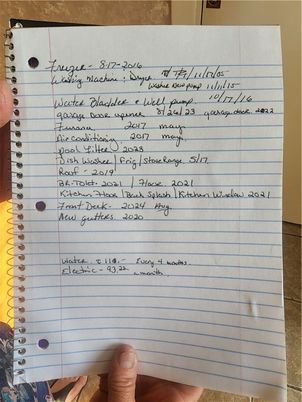 Freezer - 8-17-2016
Washing Machine & Dryer 11/17/05
Washer new pump 11/11/15
Water Bladder & Well pump 10/17/16
garage Door opener 8/26/23 garage door 2022
Furnace 2017 may
Air conditioning 2017 may.
pool Filter 2023
Dish Washer / Frig / Stove Range 5/17
Roof - 2019
BR. Toilet - 2021 / Floor 2021
Kitchen Floor / Back Splash / Kitchen Window 2021
Front Deck - 2024 Aug.
New gutters 2020
Water 110.- Every 4 months.
Electric - 93.22 a month.